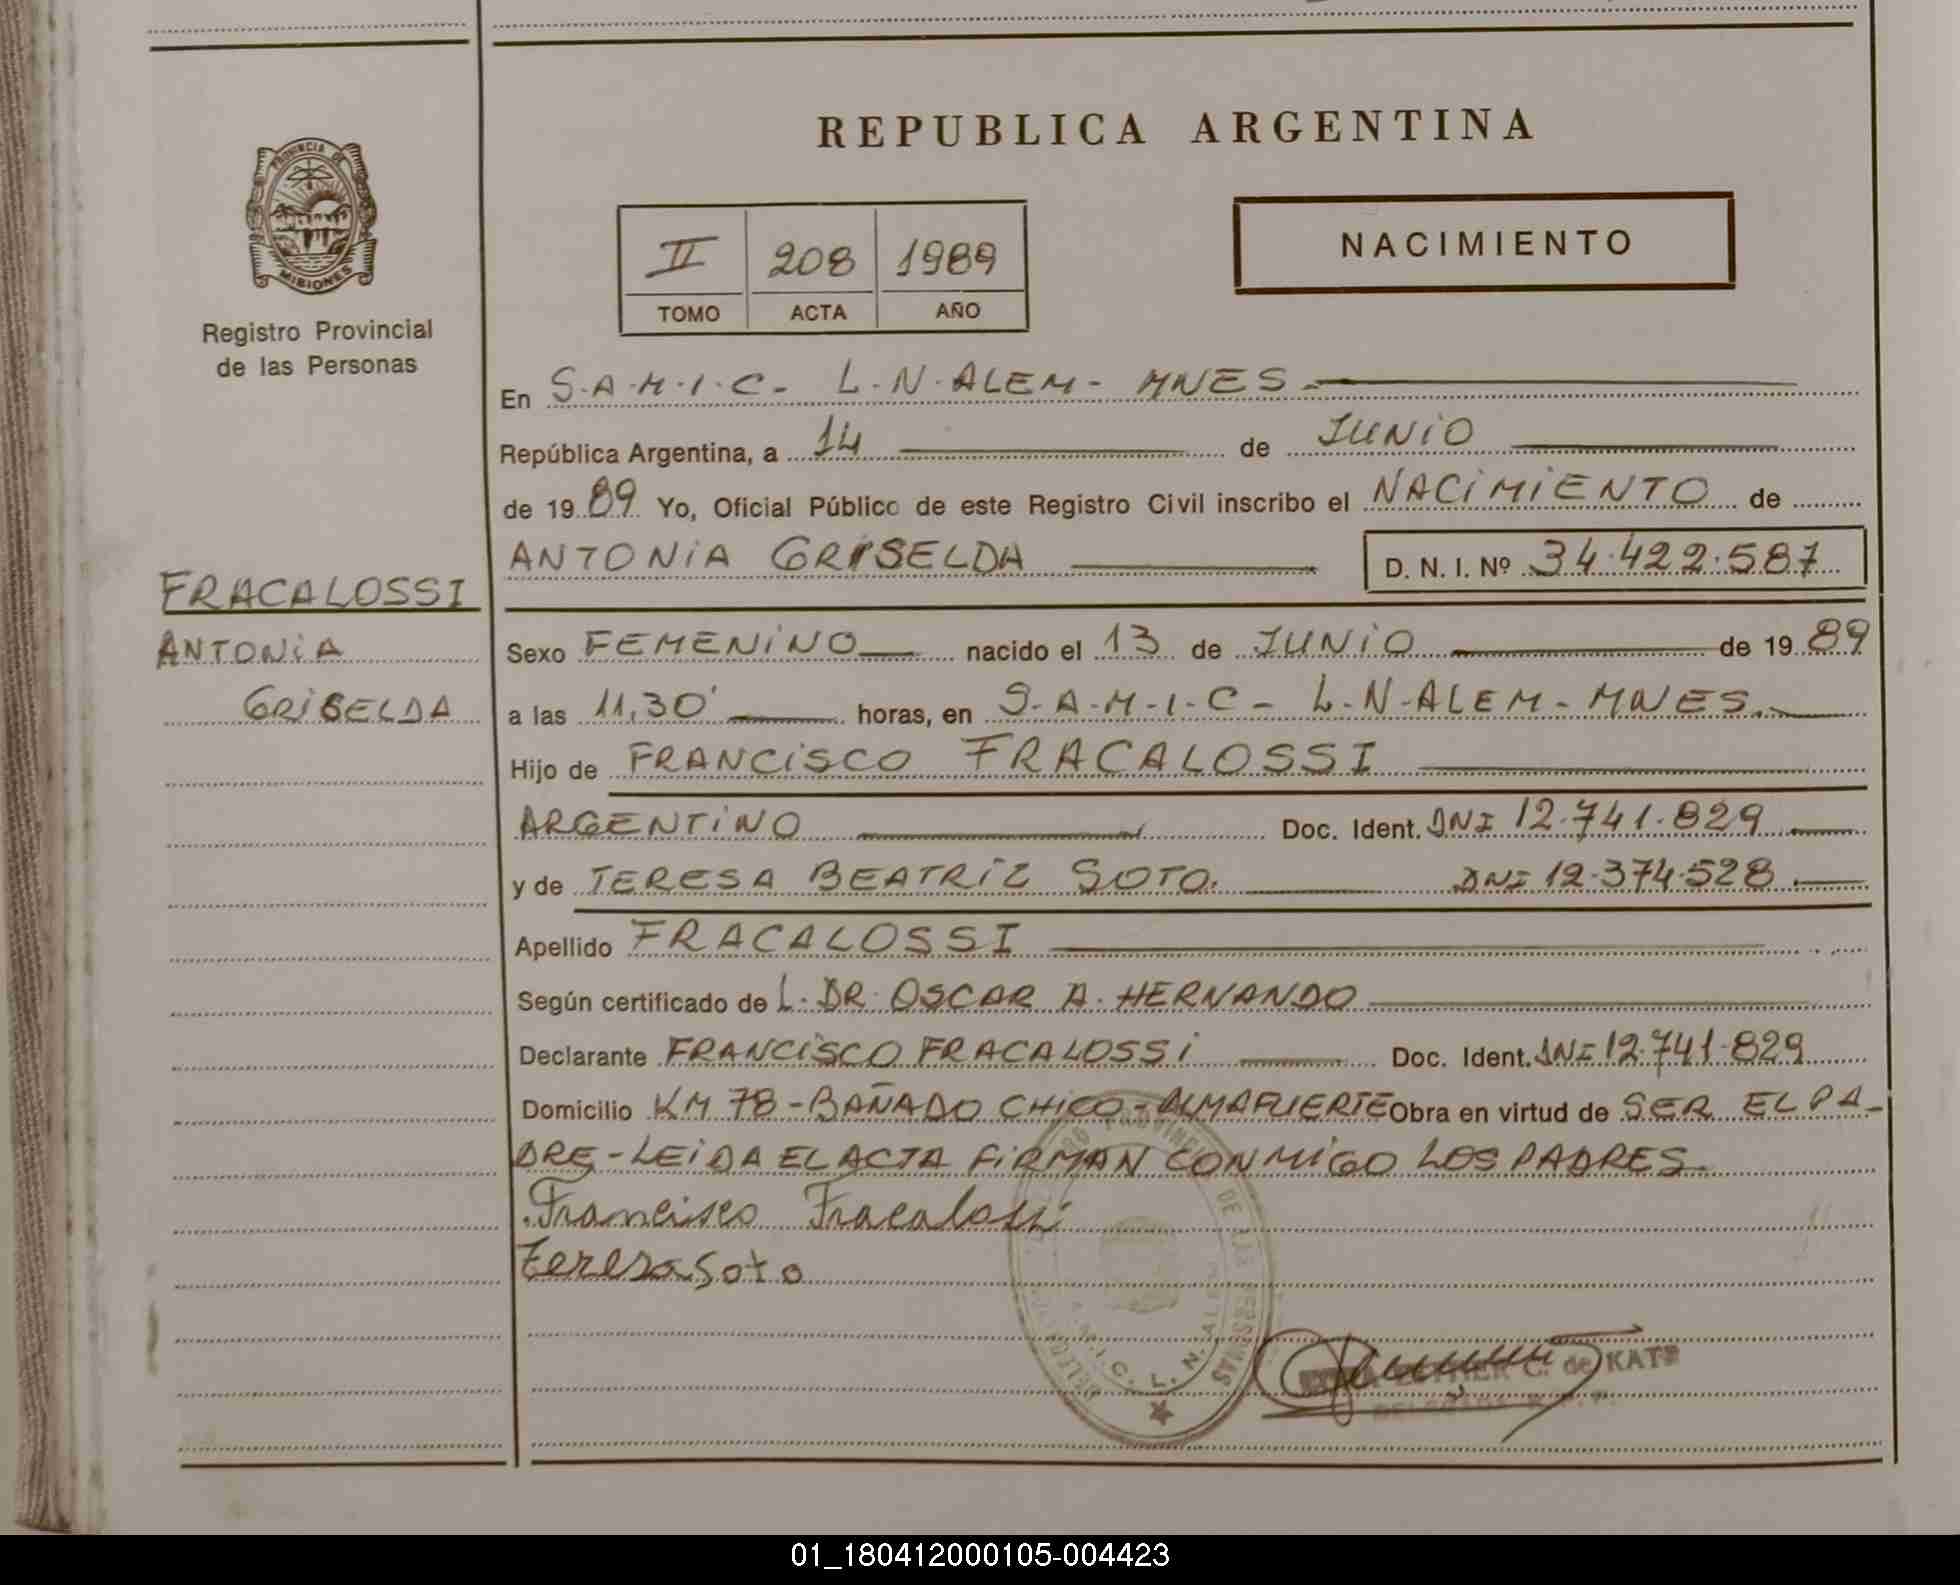 REPUBLICA ARGENTINA
PROVINCIA DE
MISIONES
Registro Provincial
de las Personas
II 208 1989
TOMO ACTA AÑO
NACIMIENTO
En S.A.M.I.C- L.N.ALEM- MNES.
República Argentina, a 14 de JUNiO
de 19 89 Yo, Oficial Público de este Registro Civil inscribo el NACiMiENTO de
ANTONiA GRiSELDA D. N. I. Nº 34.422.587
FRACALOSSI
ANTONiA
GRiSELDA
Sexo FEMENiNO nacido el 13 de JUNiO de 19 89
a las 11,30' horas, en S-A-M-I-C- L.N-ALEM-MNES.
Hijo de FRANCiSCO FRACALOSSI
ARGENTiNO Doc. Ident. DNI 12.741.829
y de TERESA BEATRiZ SOTO. DNI 12.374.528
Apellido FRACALOSSI
Según certificado de L. DR. OSCAR A. HERNANDO
Declarante FRANCiSCO FRACALOSSi Doc. Ident. DNI 12.741.829
Domicilio KM 78-BAÑADO CHiCO-ALMAFUERTE Obra en virtud de SER EL PA-
DRE-LEiDA EL ACTA FiRMAN CONMiGO LOS PADRES.
Francisco Fracalossi
Teresa Soto
PROVINCIAL DE LAS PERSONAS
L. N. ALEM
C. de KATZ
01_180412000105-004423